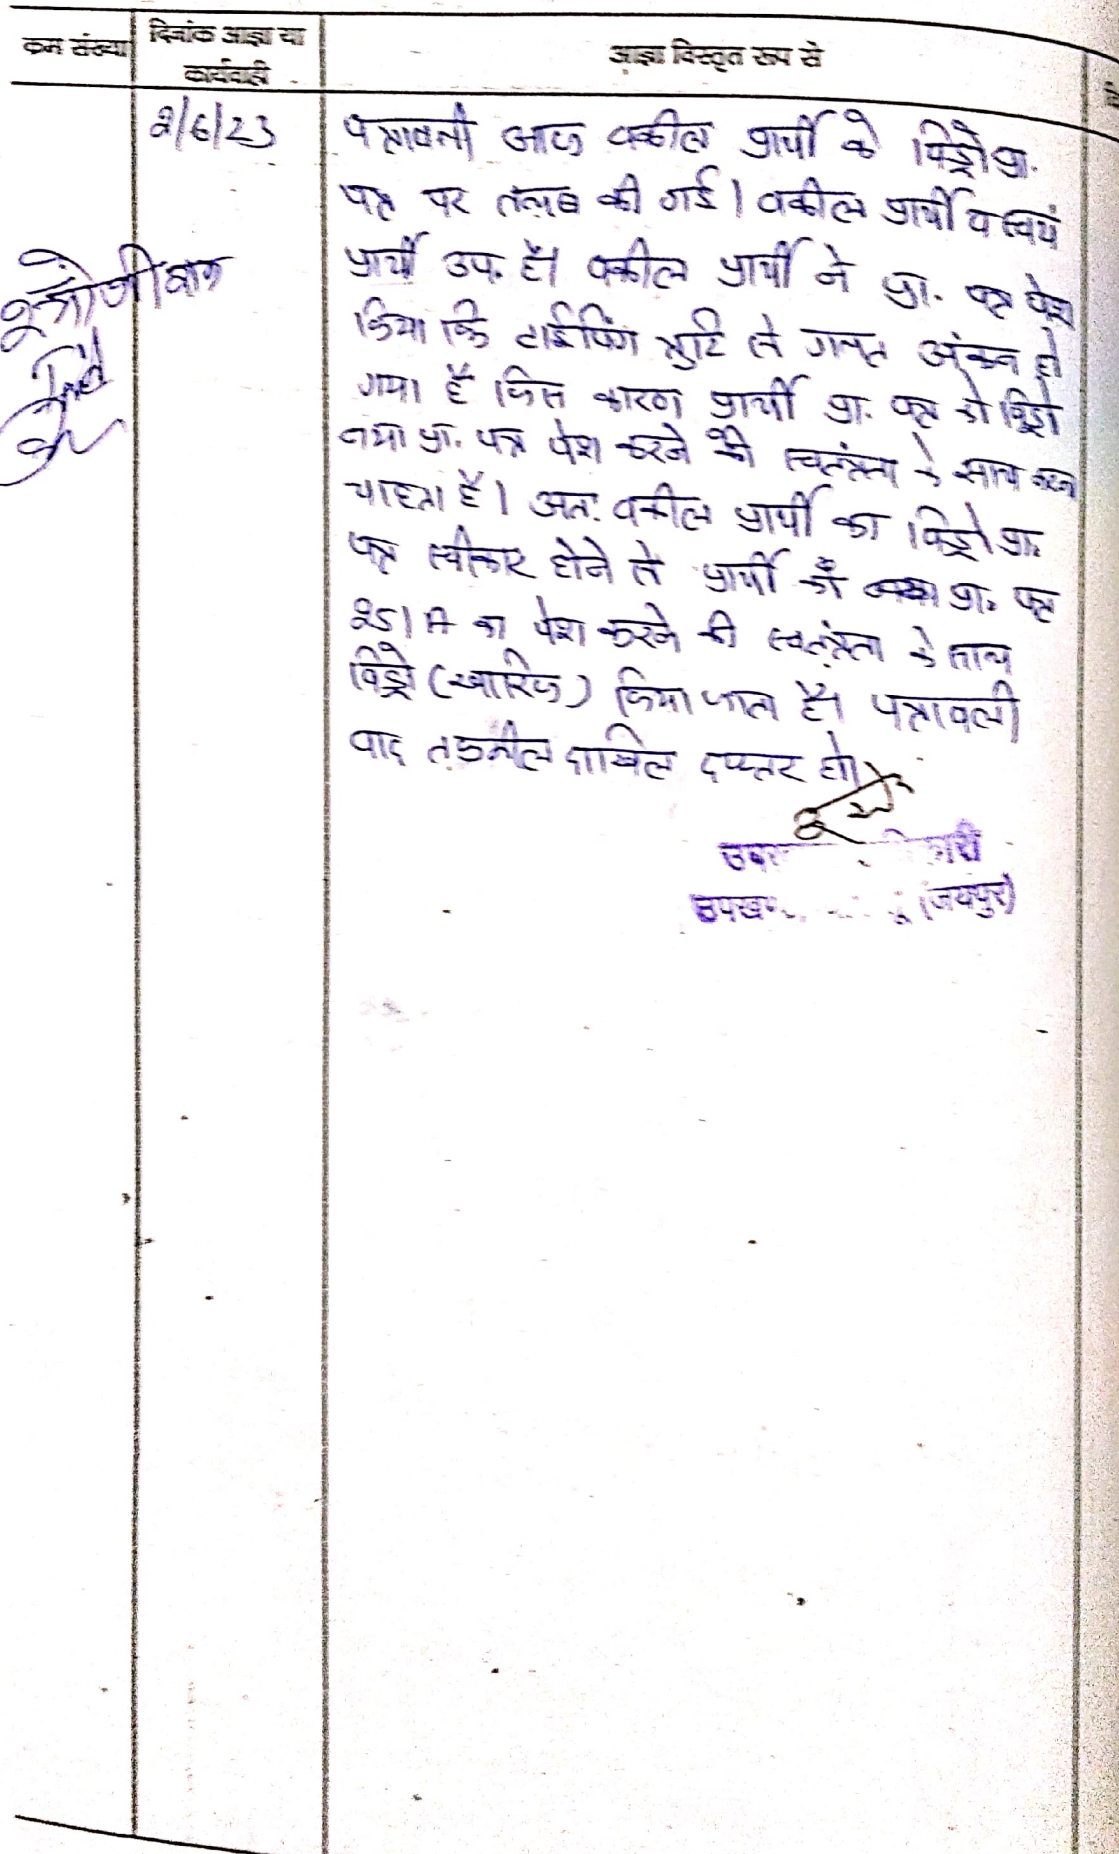 क्रम संख्या
दिनांक आज्ञा या
कार्यवाही
आज्ञा विस्तृत रूप से
2/6/23
पत्रावली आज वकील प्रार्थी के विड्रो प्रा.
पत्र पर तलब की गई। वकील प्रार्थी व स्वयं
प्रार्थी उप. है। वकील प्रार्थी ने प्रा. पत्र पेश
किया कि टाईपिंग त्रुटि से गलत अंकन हो
गया है जिस कारण प्रार्थी प्रा. पत्र को विड्रो
नया प्रा. पत्र पेश करने की स्वतंत्रता के साथ करना
चाहता है। अतः वकील प्रार्थी का विड्रो प्रा.
पत्र स्वीकार होने से प्रार्थी को प्रा. पत्र
251 A का पेश करने की स्वतंत्रता के साथ
विड्रो (खारिज) किया जाता है। पत्रावली
बाद तकमील दाखिल दफ्तर हो।
(जयपुर)